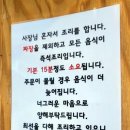 사장님 혼자서 조리를 합니다.
찌장을 제외하고 모든 음식이
즉석조리입니다.
기본 15분정도 소요됩니다.
주문이 몰릴 경우 음식이 더
늦어집니다.
너그러운 마음으로
양해부탁드립니다.
최선을 다해 조리하고 있으니